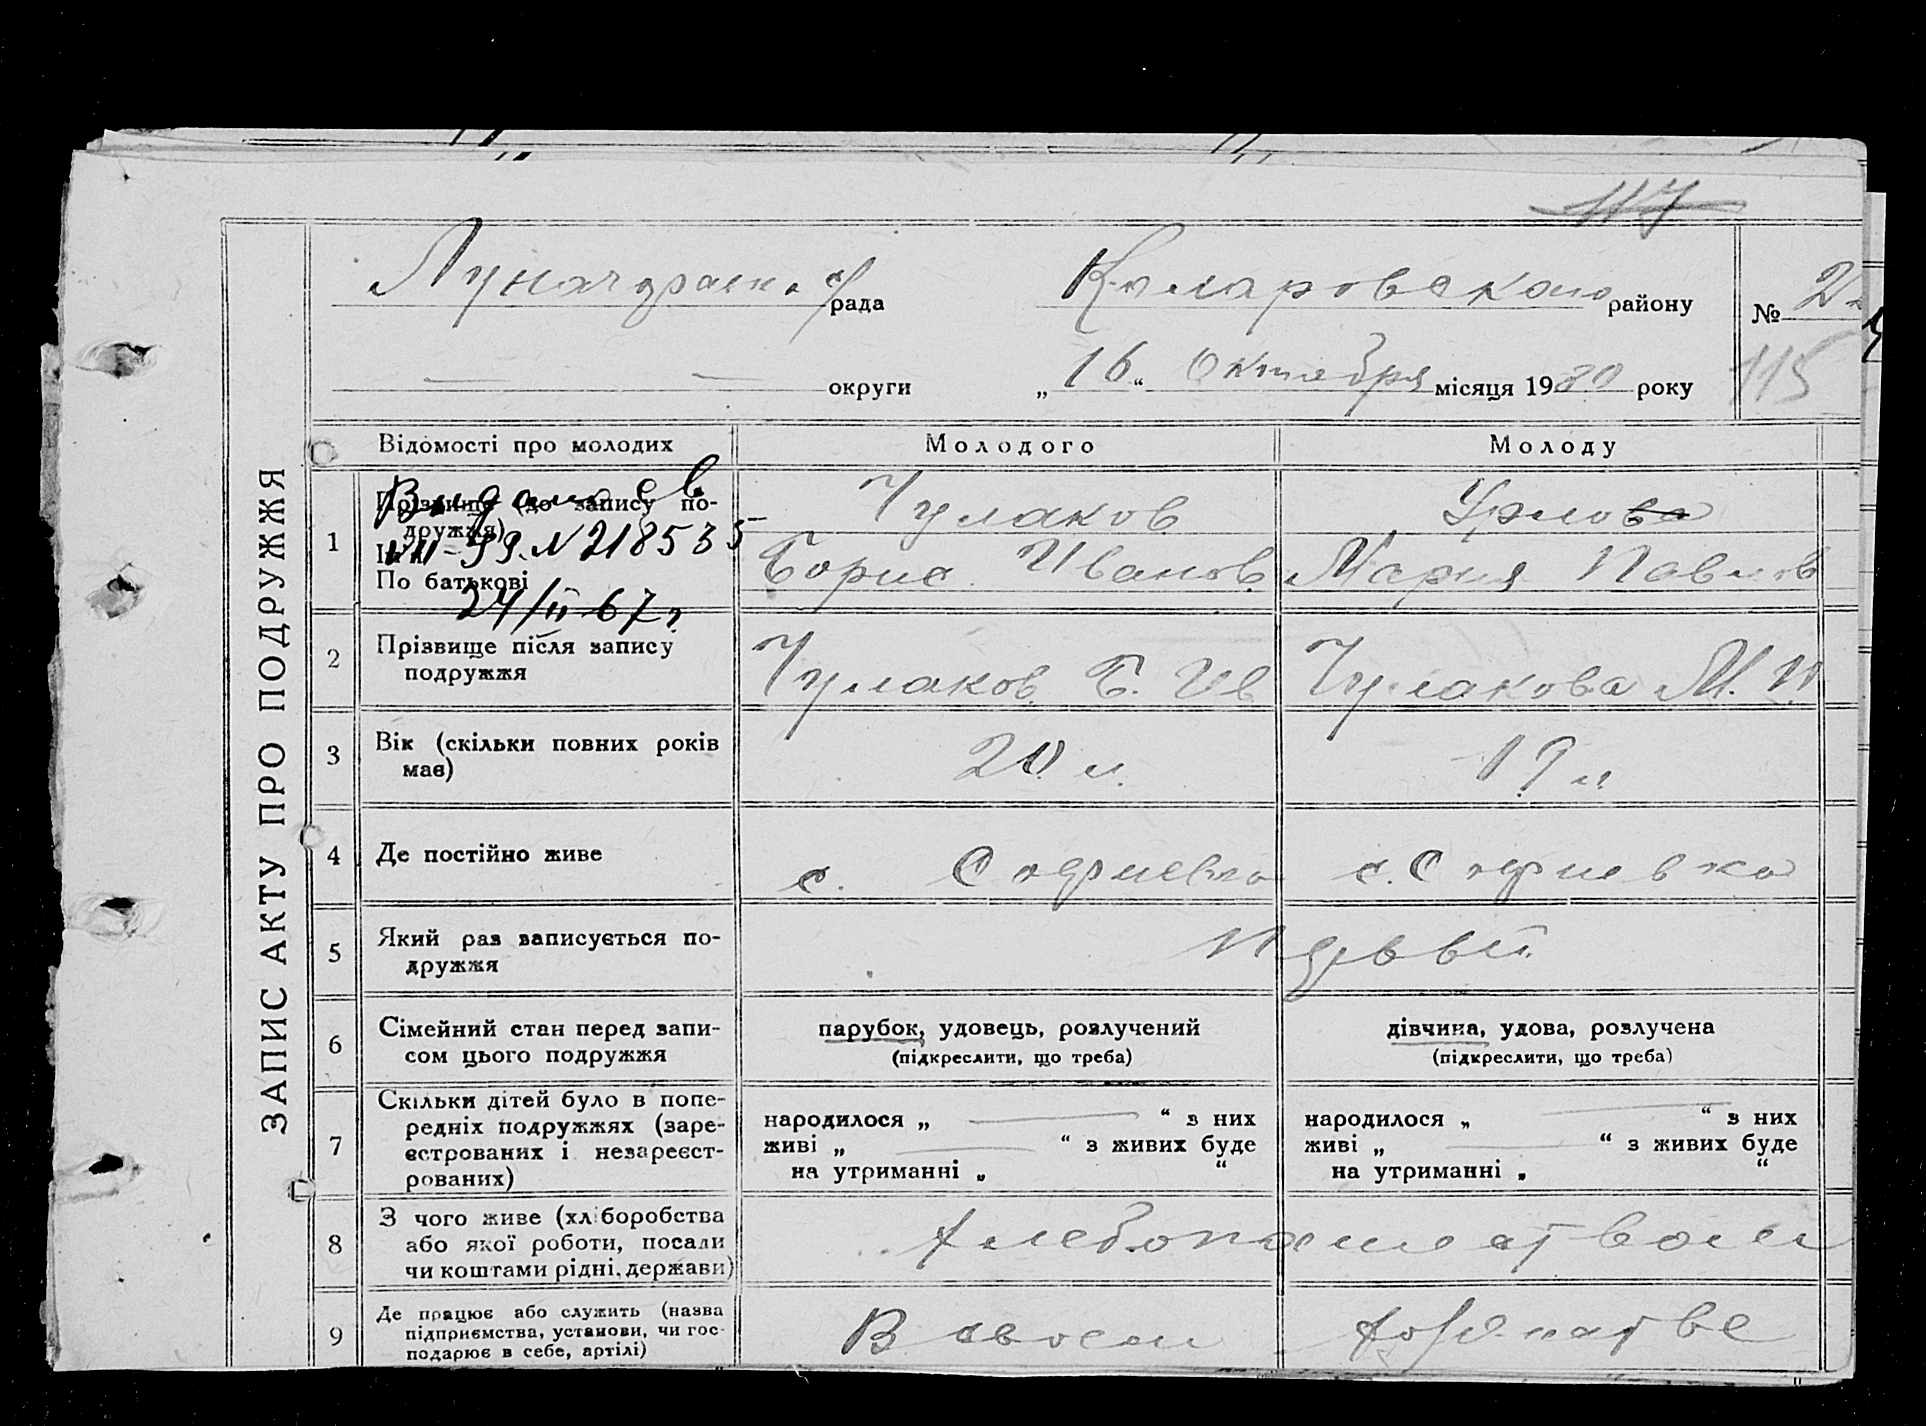 117
Луначарск. с/рада Комаровского району № 22
115
округи „16“ Октября місяця 1930 року
ЗАПИС АКТУ ПРО ПОДРУЖЖЯ
Відомості про молодих Молодого Молоду
1 Прізвище (до запису подружжя) Чулаков
Ім'я
По батькові Борис Иванов. Мария Павлов
Выдано св
№218535
24/II-67г.
2 Прізвище після запису подружжя Чулаков Б. Ив Чулакова М. П
3 Вік (скільки повних років має) 20 л. 19 л.
4 Де постійно живе с. Софиевка с. Софиевка
5 Який раз записується подружжя первый
6 Сімейний стан перед записом цього подружжя парубок, удовець, розлучений дівчина, удова, розлучена
(підкреслити, що треба) (підкреслити, що треба)
7 Скільки дітей було в попередніх подружжях (зареєстрованих і незареєстрованих)
народилося „ “ з них народилося „ “ з них
живі „ “ з живих буде живі „ “ з живих буде
на утриманні „ “ на утриманні „ “
8 З чого живе (хліборобства або якої роботи, посади чи коштами рідні, держави) Хлебопашеством
9 Де працює або служить (назва підприємства, установи, чи господарює в себе, артілі) В своем хозяйстве